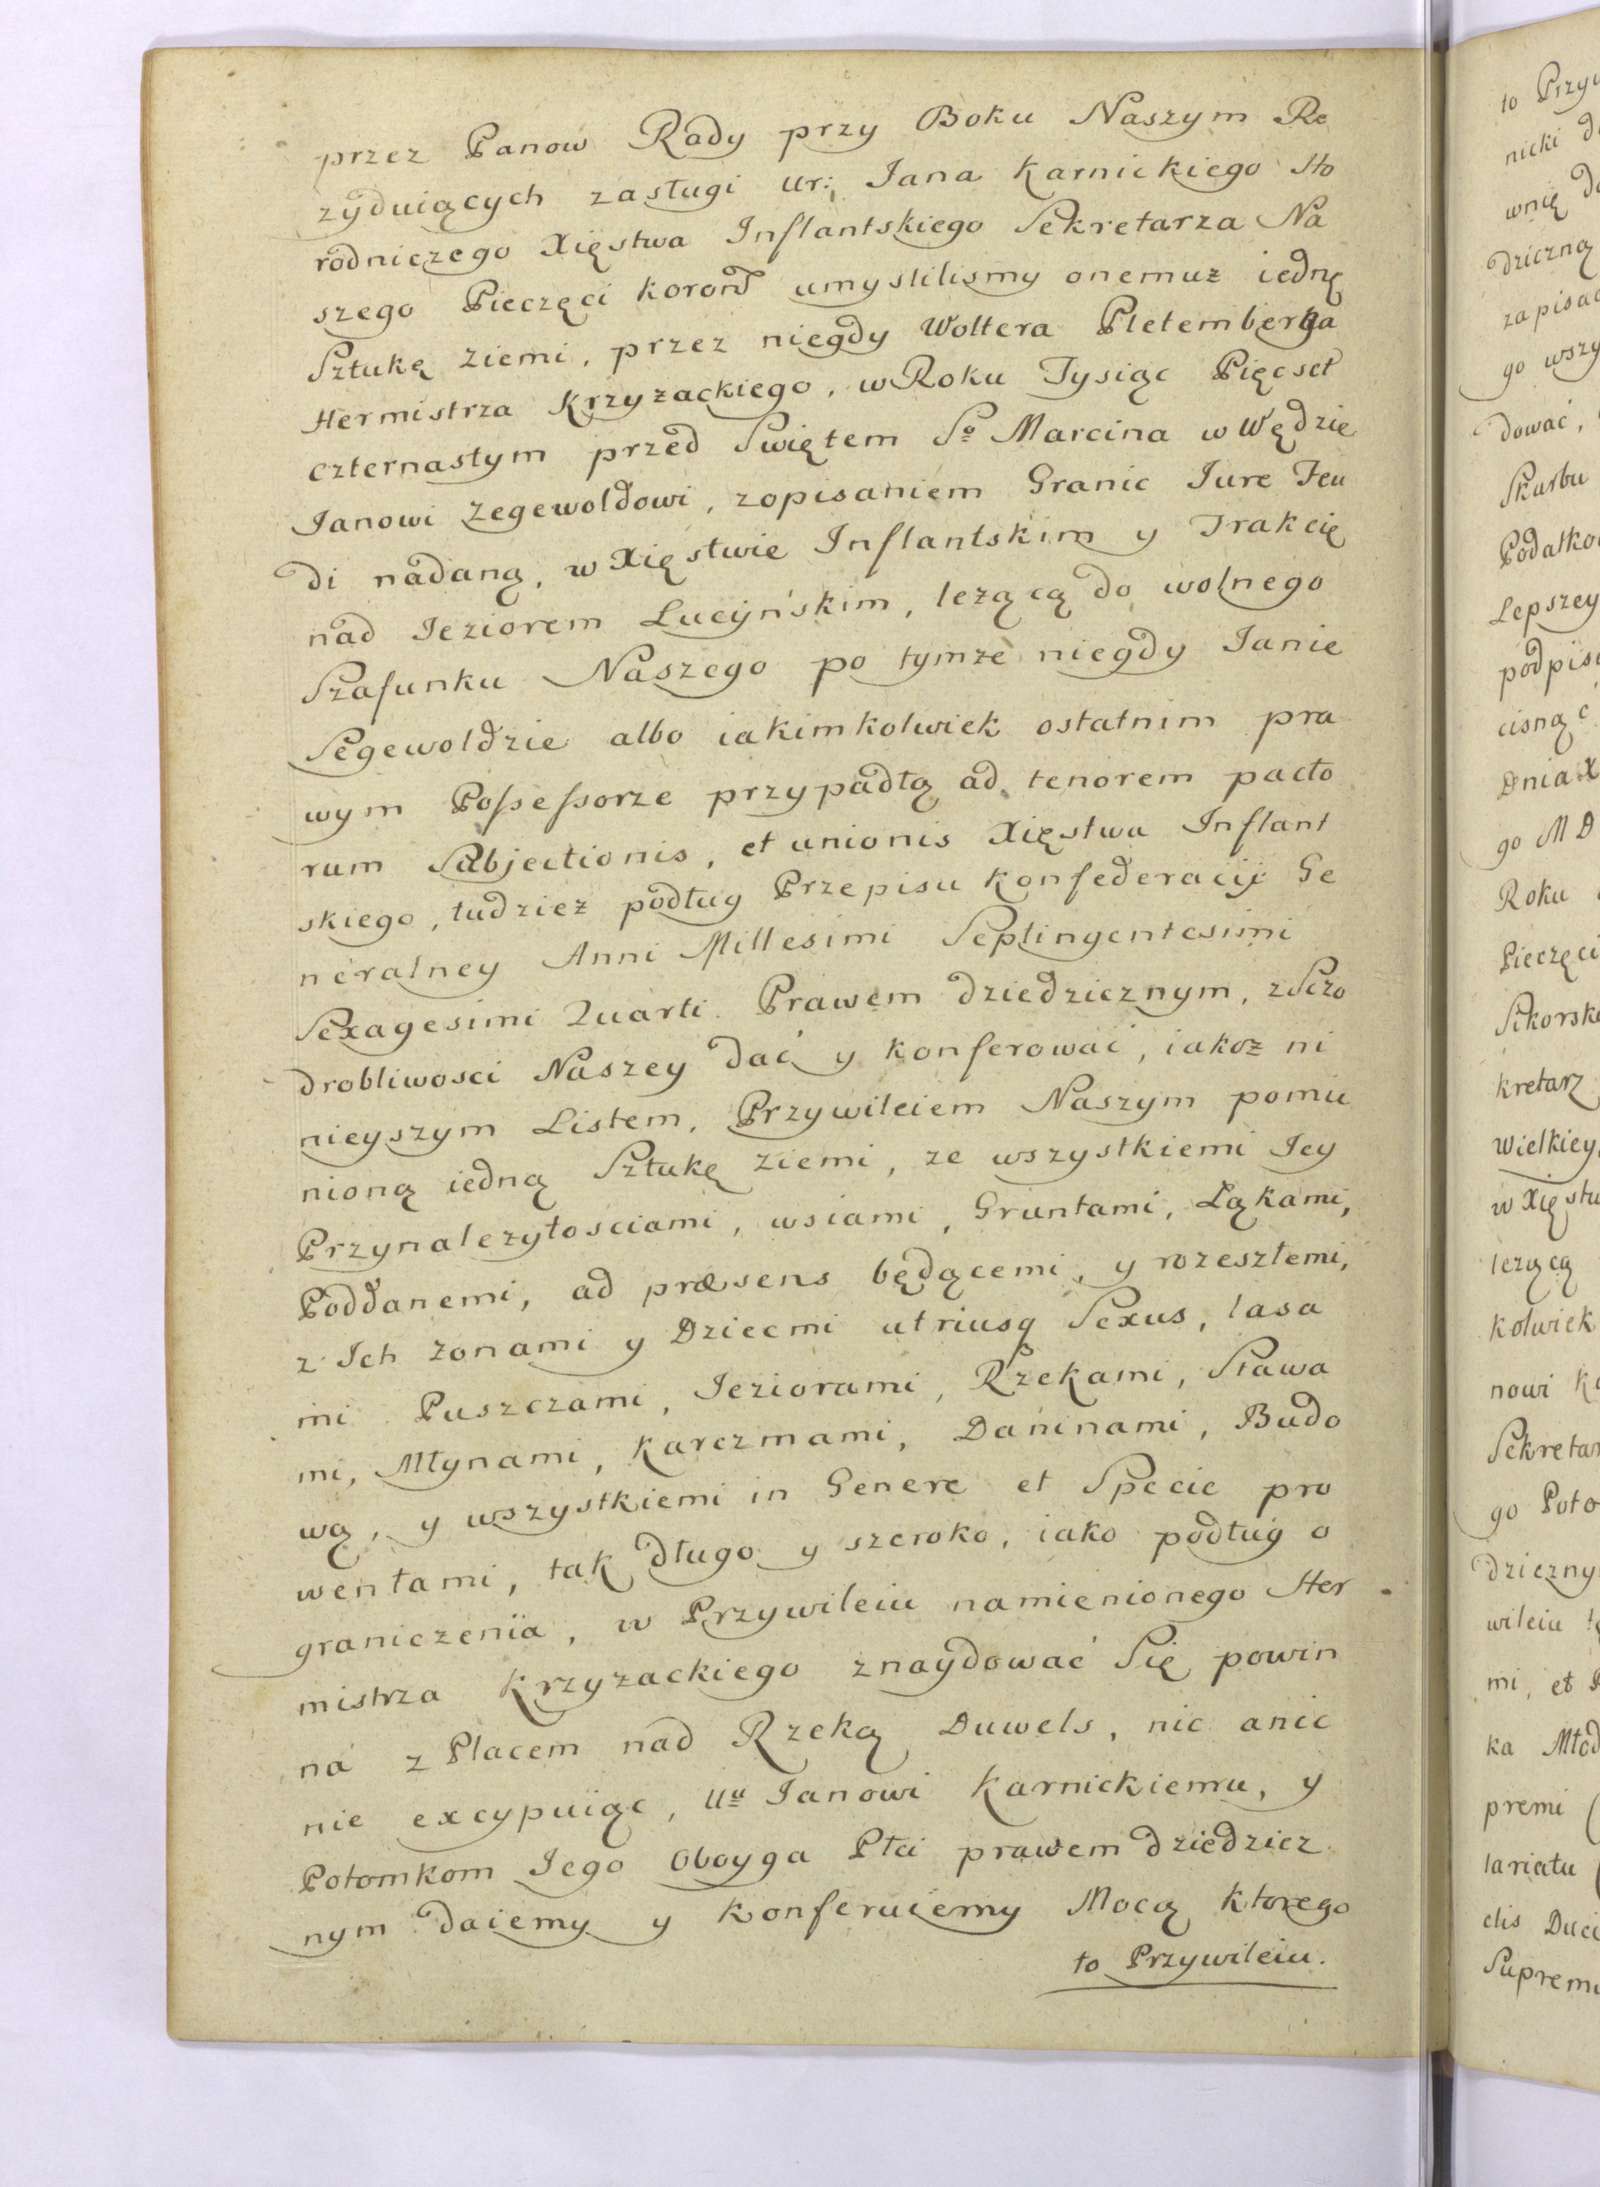 przez Panow Rady przy Boku Naszym Re
zyduiących zasługi Ur: Jana Karnickiego Ho
rodniczego Xięstwa Inflantskiego Sekretarza Na
szego Pieczęci koron umyslilismy onemuz iedną
Sztukę ziemi, przez niegdy Woltera Pletemberga
Hermistrza Krzyzackiego, w Roku Tysiąc Pięcset
czternastym przed Swiętem So Marcina w Wędzie
Janowi Zegewoldowi, z opisaniem Granic Jure Feu
di nadaną, w Xięstwie Inflantskim y Trakcię
nad Jeziorem Lucyńskim, lezącą do wolnego
Szafunku Naszego po tymze niegdy Janie
Segewoldzie albo iakimkolwiek ostatnim pra
wym Possessorze przypadłą ad tenorem pacto
rum Subjectionis, et unionis Xięstwa Inflant
skiego, tudziez podług Przepisu Konfederacÿi Ge
neralney Anni Millesimi Septingentesimi
Sexagesimi Quarti Prawem dziedzicznym, z Szczo
drobliwosci Naszey dać y konferować, iakoz ni
nieyszym Listem, Przywileiem Naszym pomie
nioną iedną Sztukę ziemi, ze wszystkiemi Jey
Przynalezytościami, wsiami, Gruntami, Łąkami,
Poddanemi, ad præsens będącemi, y rozeszłemi,
z Ich zonami y Dziecmi utriusq Sexus, lasa
mi Puszczami, Jeziorami, Rzekami, Stawa
mi, Młynami, Karczmami, Daninami, Budo
wą, y wszystkiemi in Genere et Specie pro
wentami, tak długo y szeroko, iako podług o
graniczenïa, w Przywileiu namienionego Her
mistrza Krzyzackiego znaydować Się powin
na z Placem nad Rzeką Duwels, nic anic
nie excypuiąc, Uu Janowi Karnickiemu, y
Potomkom Jego Oboyga Płci prawem dziedzicz
nym daiemy y konferuiemy Mocą ktorego
to Przywileiu.
to
nicki
wnię
dziczną
go
dować,
Skarbu
Lepszey
cisnąć
Dnia X
go MD
Roku
Pieczęci
kretarz
Wielkiey
lezącą
kolwiek
nowi
go
wileiu
mi, et
ka
premi
lariatu